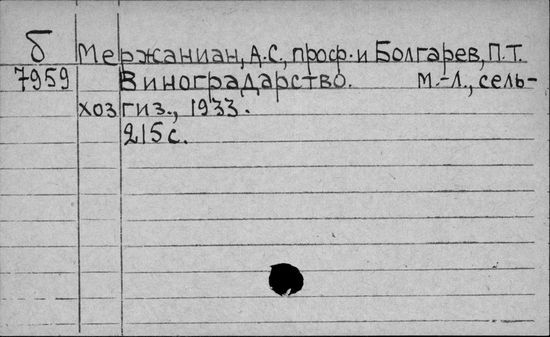 б Мержаниан, А.С., проф. и Болгарев, П.Т.
7959 Виноградарство. М.-Л., сель-
хозгиз., 1933.
215 с.